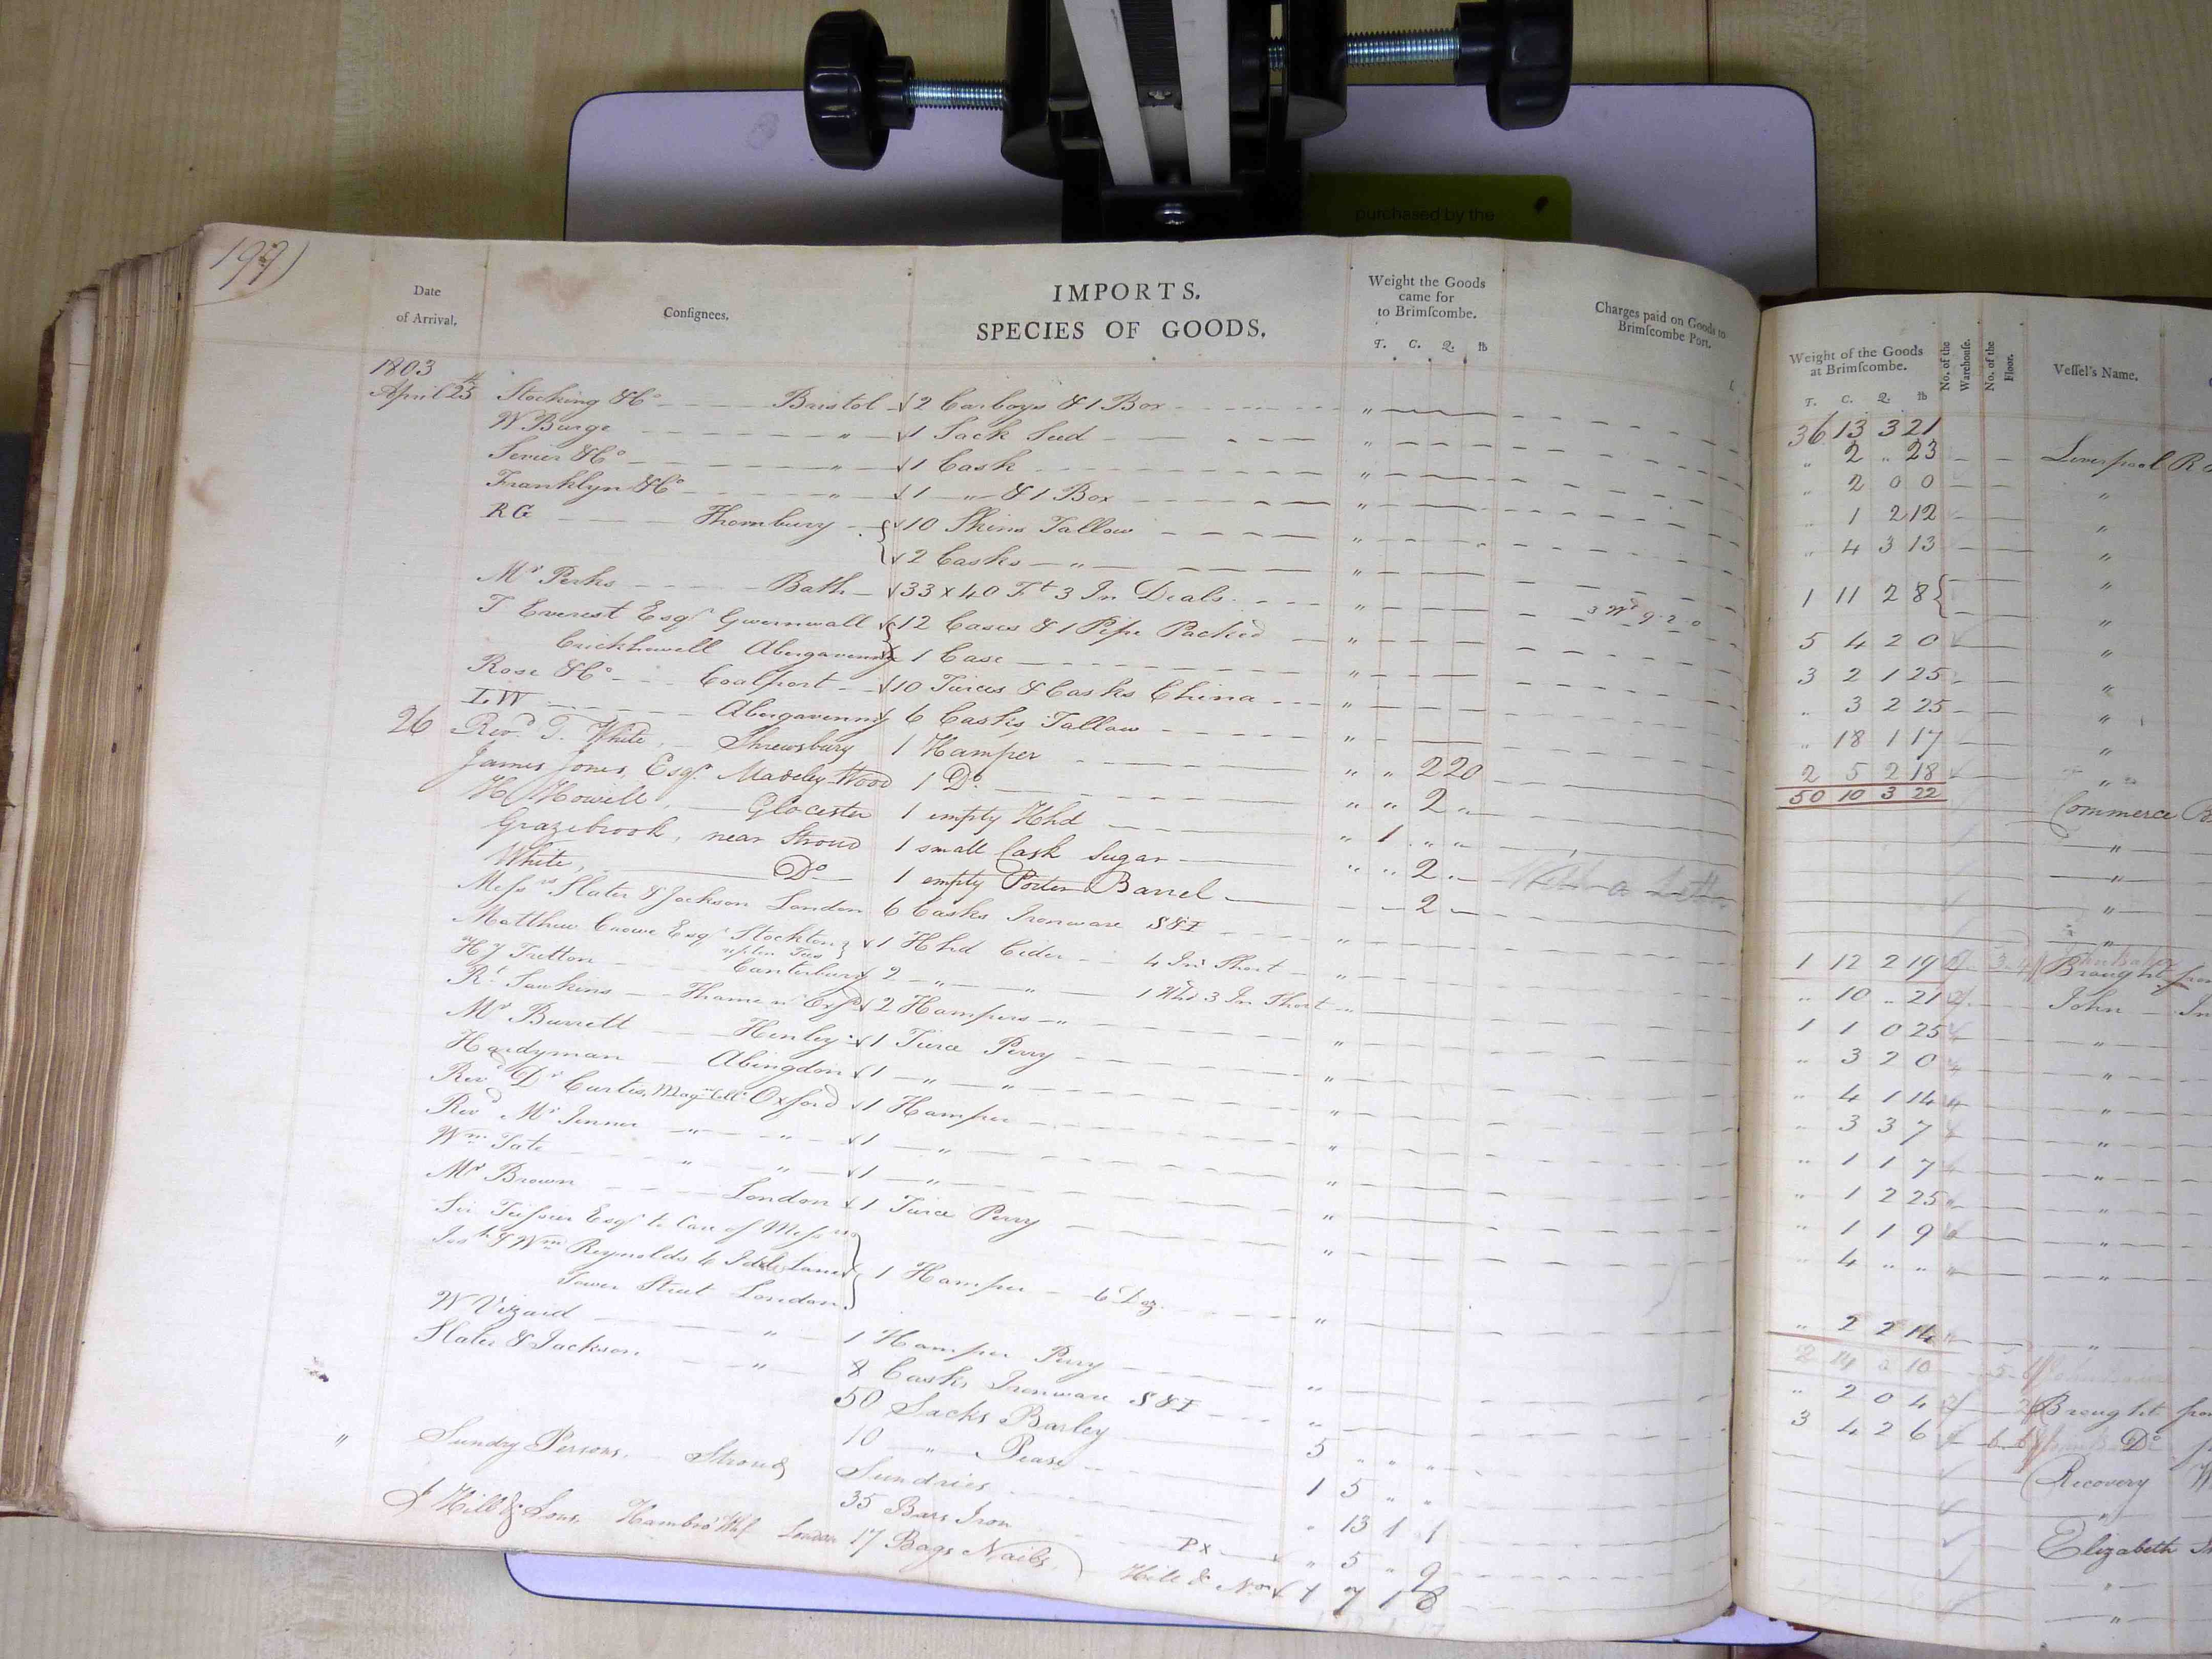 purchased by the
197)
Date of Arrival.
Conſignees.
IMPORTS.
SPECIES OF GOODS.
Weight the Goods came for to Brimſcombe.
T. C. Q. lb
Charges paid on Goods to Brimſcombe Port.
1803
April 25th Stocking & Co Bristol 2 Carboys & 1 Box
W Burge " 1 Sack Seed
& Co " 1 Cask
Franklyn & Co " 1 " & 1 Box
RG Thornbury 10 Skins Tallow
2 Casks "
Mr Perks Bath 33 x 40 Ft 3 In Deals 3 Wd 9 2 0
T Everest Esqr 12 Cases & 1 Pipe Packed
Crickhowell Abergavenny 1 Case
Rose & Co Coalport 10 Tierces & Casks China
LW Abergavenny 6 Casks Tallow
26 Revd T. White Shrewsbury 1 Hamper " " 2 20
James Jones, Esqr. Madeley Wood 1 Do " " 2 "
H Howell, Glocester 1 empty Hhd " 1 " "
Grazebrook, near Stroud 1 small Cask Sugar " " 2 "
White, Do 1 empty Porter Barrel 2
Messrs Slater & Jackson London 6 Casks Ironware S&I
Matthew Crowe Esqr Stockton upon Tees 1 Hhd Cider 4 In Short
HJ Tritton Canterbury 2 " " 1 Hhd 3 In Short
Rt Sawkins Thame 2 Hampers "
Mr Burrett Henley 1 Tierce Perry
Hardyman Abingdon 1 " "
Revd Dr Curtis, Magn Coll Oxford 1 Hamper
Revd Mr Jenner " " 1 "
Wm Tate " " 1 "
Mr Brown London 1 Tierce Perry
Esqr to Care of Messrs
Josh & Wm Reynolds 6 Idol Lane 1 Hamper 6 Doz.
Tower Street London
W Vizard " 1 Hamper Perry
Slater & Jackson " 8 Casks Ironware S&I
50 Sacks Barley 5 " " "
10 " Pease 1 5 " "
" Sundry Persons, Stroud Sundries " 13 1 1
35 Bars Iron PX " 5 " 9
J Hill & Sons, Hambro' Whf London 17 Bags Nails, 1 7 1 8
Weight of the Goods at Brimſcombe.
T. C. Q. lb
No. of the Warehouſe.
No. of the Floor.
Veſſel's Name.
36 13 3 21
" 2 " 23 Liverpool
" 2 0 0 "
" 1 2 12 "
" 4 3 13 "
1 11 2 8 "
5 4 2 0 "
3 2 1 25 "
" 3 2 25 "
" 18 1 17 "
2 5 2 18 "
50 10 3 22 Commerce
"
"
"
"
1 12 2 19 Brought
" 10 " 21 John
1 1 0 25 "
" 3 2 0 "
" 4 1 14 "
" 3 3 7 "
" 1 1 7 "
" 1 2 25 "
" 1 1 9 "
" 4 " " "
" 2 2 14 "
" 2 0 4 Brought
3 4 2 6 Do
Recovery
"
Elizabeth
"
"